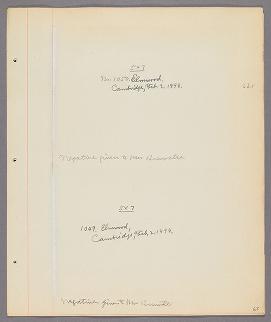 5x7
No. 1050. Elmwood,
Cambridge, Feb. 2. 1898.
Negative given to Mrs
5x7
1049. Elmwood,
Cambridge, Feb. 2. 1898.
Negative given to Mrs